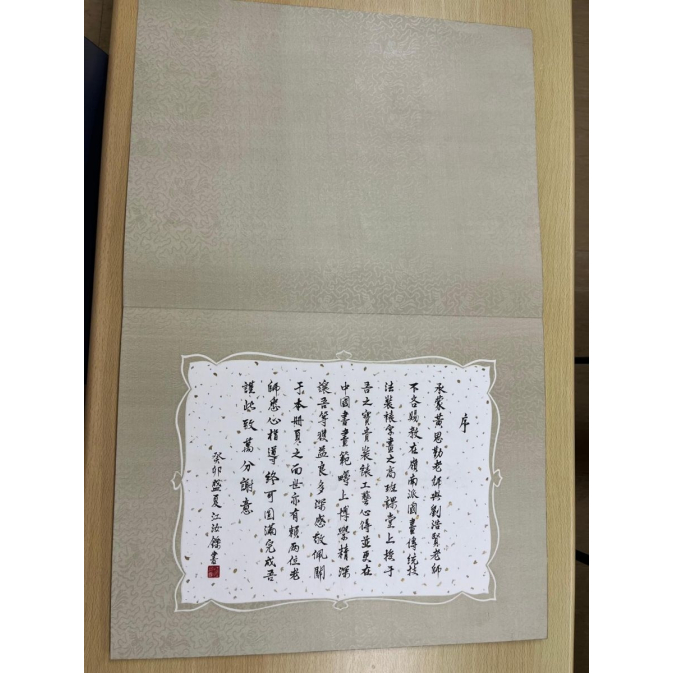 序
承蒙黃恩勤老師與劉浩賢老師
不吝賜教在嶺南派國畫傳統技
法裝裱字畫之高班課堂上授于
吾之寶貴裝裱工藝心得並更在
中國書畫範疇上博學精深
讓吾等獲益良多深感敬佩關
于本冊頁之面世亦有賴兩位老
師悉心指導終可圓滿完成吾
謹此致萬分謝意
癸卯盛夏江汝傑書